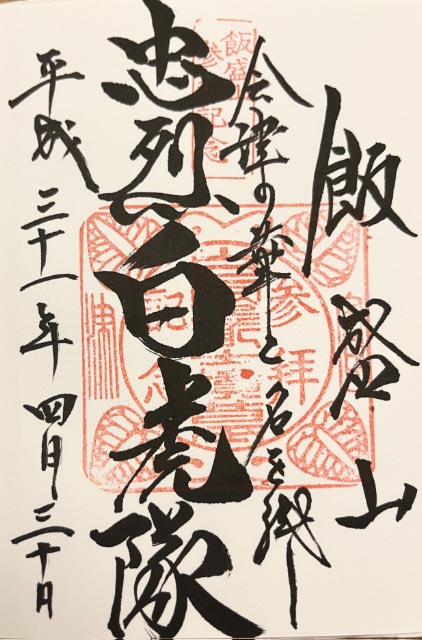 飯盛山
会津の華と名を残し
忠烈白虎隊
平成三十一年四月三十日
飯盛山
参拝記念
参拝
記念